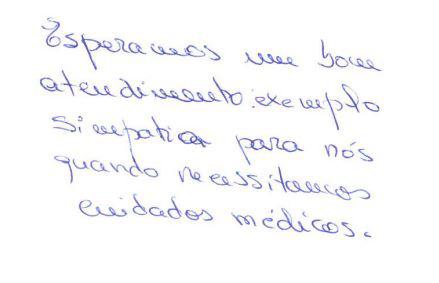 Esperamos um bom
atendimento. exemplo
simpatica para nós
quando necessitamos
cuidados médicos.